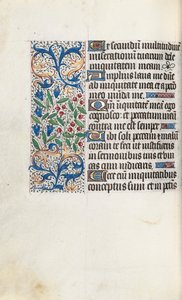 Et secundum multitudinem
miserationum tuarum dele
iniquitatem meam
Amplius laua me ab
iniquitate mea et a pecc
meo munda me
Qm iniquitatem meam ego
cognosco et peccatum meum
contra me est semper
Tibi soli peccaui et malum
coram te feci ut iustificeris
in sermonibus tuis et uin
cas cum iudicaris
Ecce enim in iniquitatibus
conceptus sum et in pctis